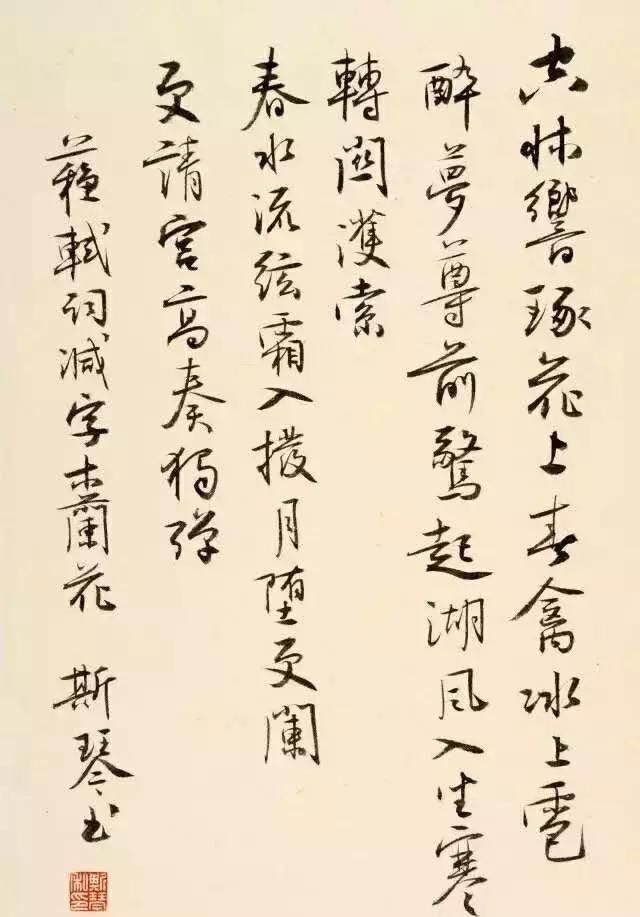 空牀響琢花上春禽冰上雹
醉夢尊前驚起湖風入坐寒
轉關濩索
春水流絃霜入撥月墮更闌
更請宮高奏獨彈
蘇軾詞減字木蘭花　斯琴書